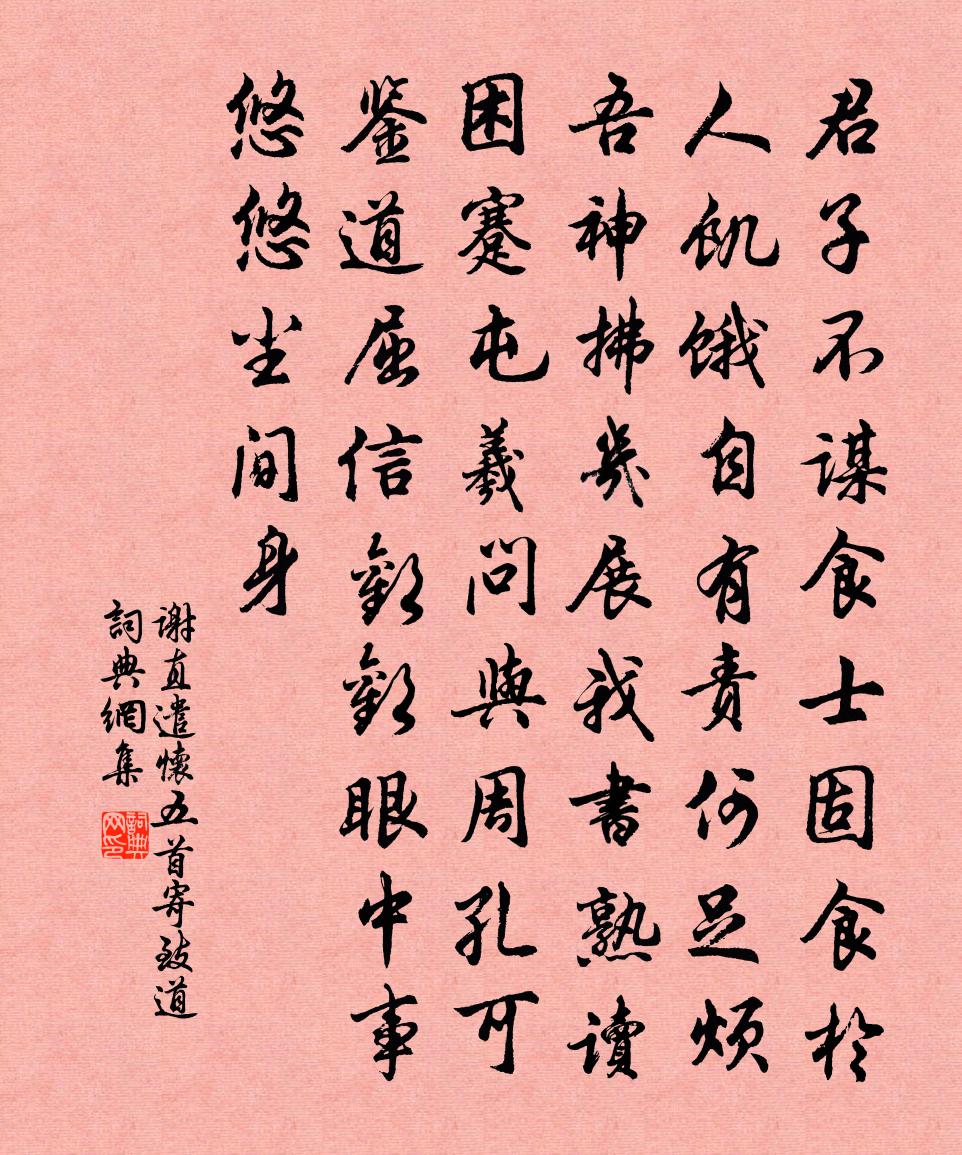 君子不谋食士固食於
人飢餓自有责何足烦
吾神拂几展我書熟读
困蹇屯羲问與周孔可
鉴道屈信歡歡眼中事
悠悠尘间身
谢直遣懷五首寄致道
詞典網集
詞典网印